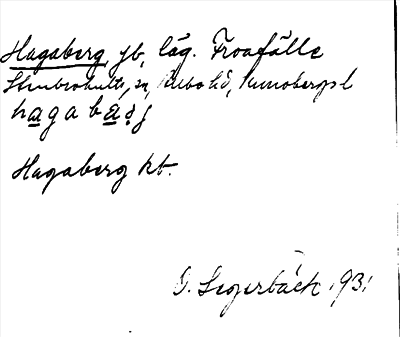 Hagaberg, jb, läg. Troafälle
Stenbrohults, sn, Allbo hd, Kronobergs l
hagabærj
Hagaberg kt.
G. Segerbäck 1931